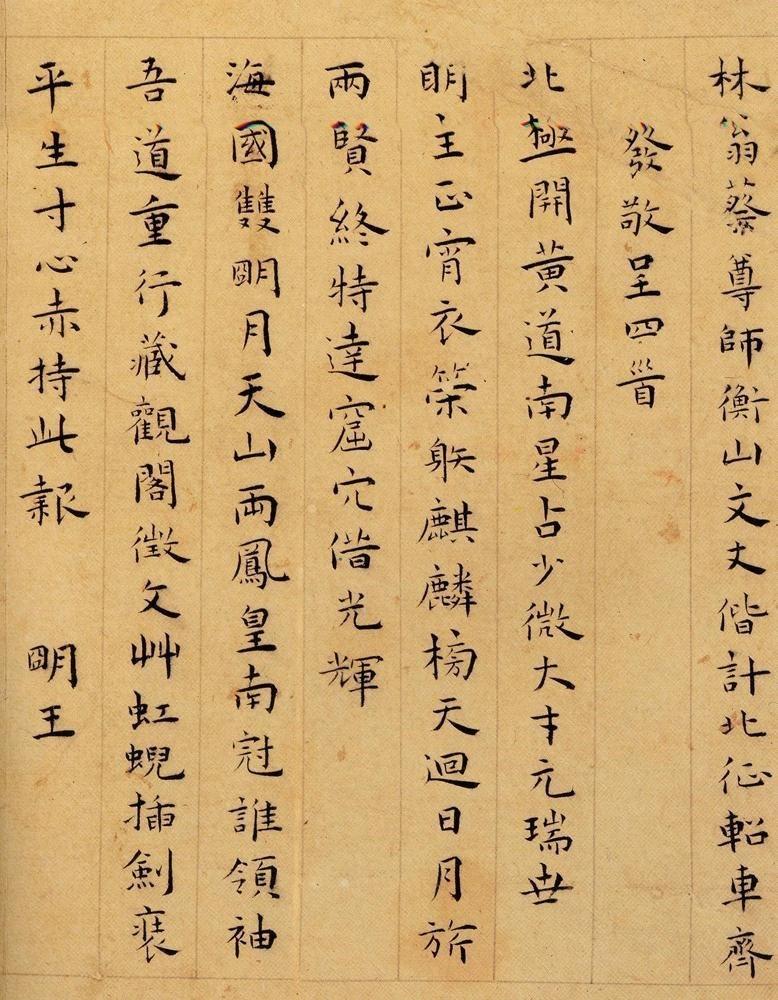 林翁蔡尊師衡山文丈偕計北征軺車齊
發敬呈四首
北極開黃道南星占少微大才元瑞世
明主正宵衣榮躭麒麟榜天迴日月旂
兩賢終特達窟穴借光輝
海國雙明月天山兩鳳皇南冠誰領袖
吾道重行藏觀閣徵文艸虹蜺插劍裝
平生寸心赤持此報 明王